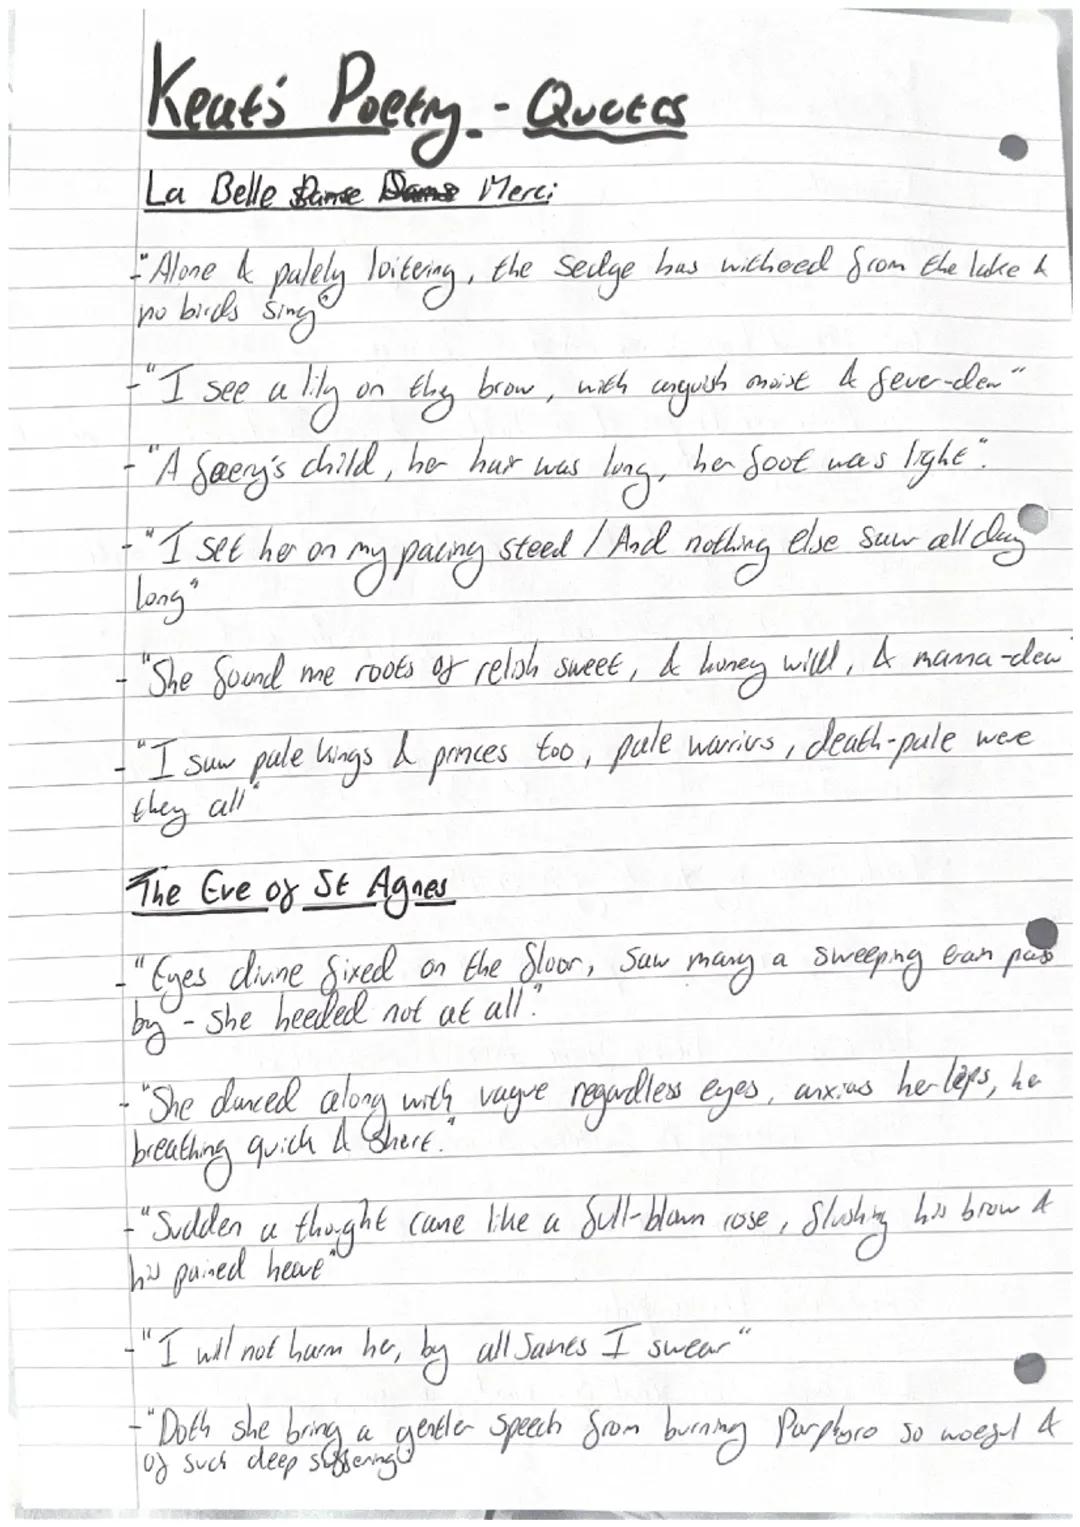 Keat's Poetry - Quotes
La Belle Dame Merci
- "Alone & palely loitering, the sedge has withered from the lake &
no birds sing"
- "I see a lily on thy brow, with anguish moist & fever-dew"
- "A faery's child, her hair was long, her foot was light".
- "I set her on my pacing steed / And nothing else saw all day
long"
- "She found me roots of relish sweet, & honey wild, & manna-dew"
- "I saw pale kings & princes too, pale warriors, death-pale were
they all"
The Eve of St Agnes
- "Eyes divine fixed on the floor, saw many a sweeping train pass
by - she heeded not at all".
- "She danced along with vague regardless eyes, anxious her lips, her
breathing quick & short."
- "Sudden a thought came like a full-blown rose, flushing his brow &
his pained heart"
- "I will not harm her, by all Saints I swear"
- "Doth she bring a gentler speech from burning Porphyro so woeful &
of such deep suffering"